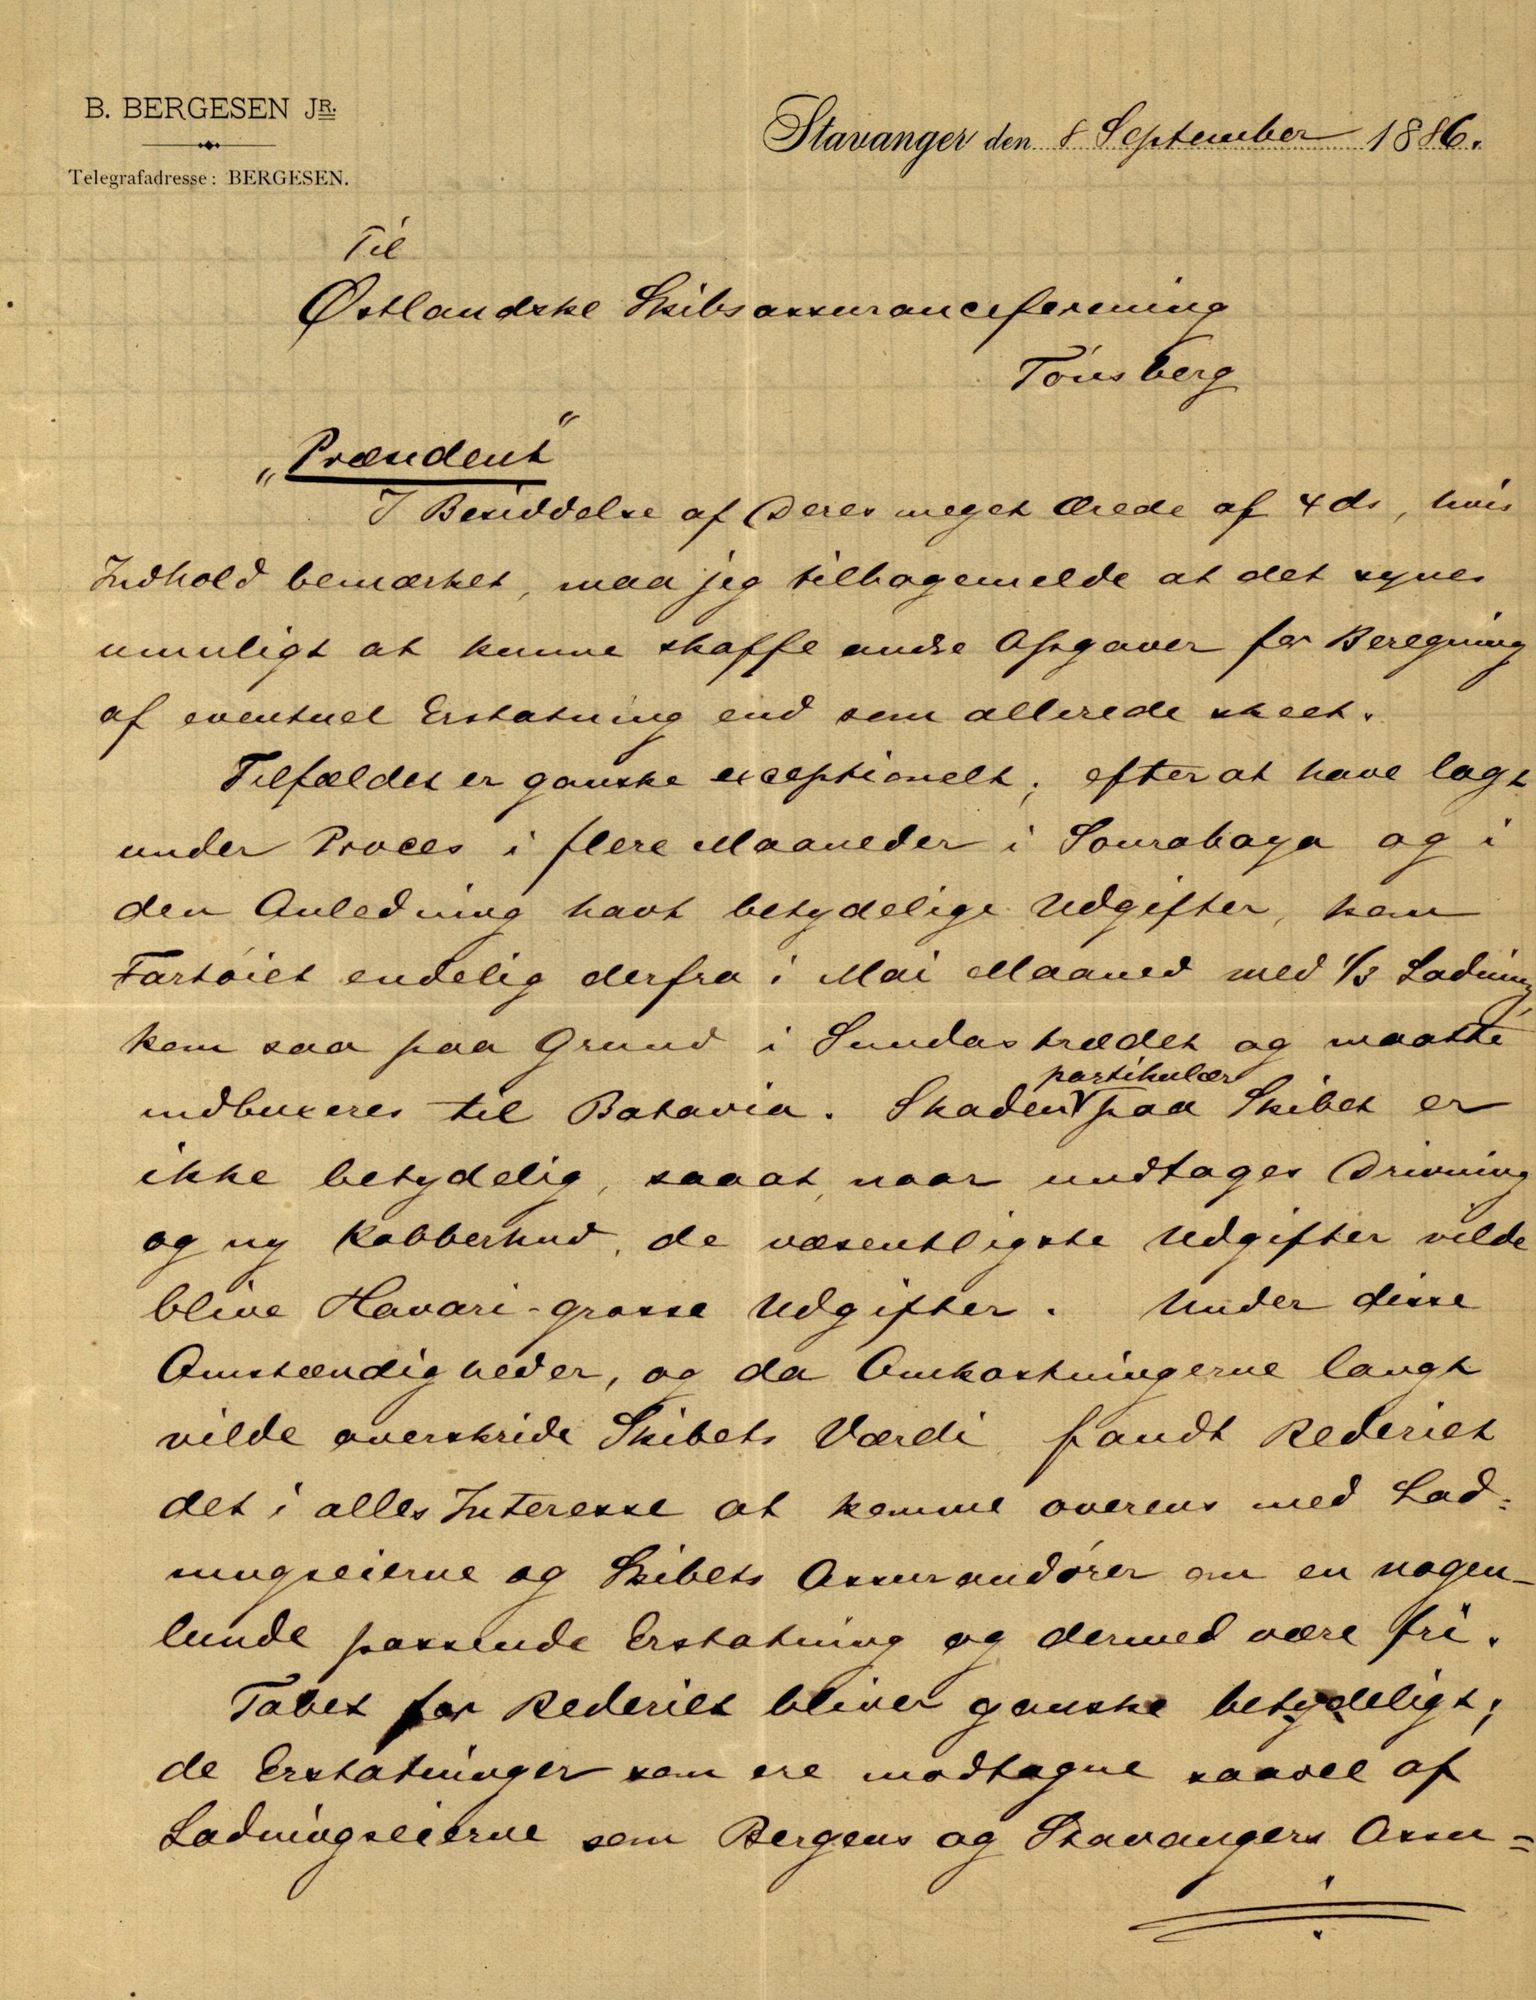 B. BERGESEN JR.
Telegrafadresse: BERGESEN.
Stavanger den 8 September 1886.
Til
Østlandske Skibsassuranceforening
Tönsberg
„Præsident"
I Besiddelse af Deres meget Ærede af 4 ds, hvis
Indhold bemærket, maa jeg tilbagemelde at det synes
umuligt at kunne skaffe andre Opgaver for Beregning
af eventuel Erstatning end som allerede skeet.
Tilfældet er ganske exceptionelt; efter at have lagt
under Proces i flere Maaneder i Sourabaya og i
den Anledning havt betydelige Udgifter, kom
Fartöiet endelig derfra i Mai Maaned med 1/3 Ladning,
kom saa paa Grund i Sundastrædet og maatte
indbuxeres til Batavia. Skaden partikulær paa Skibet er
ikke betydelig, saaat, naar undtages Drivning
og ny Kobberhud, de væsentligste Udgifter vilde
blive Havari-grosse Udgifter. Under disse
Omstændigheder, og da Omkostningerne langt
vilde overskride Skibets Værdi fandt Rederiet
det i alles Interesse at komme overens med Lad=
ningseierne og Skibets Assurandörer om en nogen-
lunde passende Erstatning og dermed være fri.
Tabet for Rederiet bliver ganske betydeligt;
de Erstatninger som ere modtagne saavel af
Ladningseierne som Bergens og Stavangers Assu=